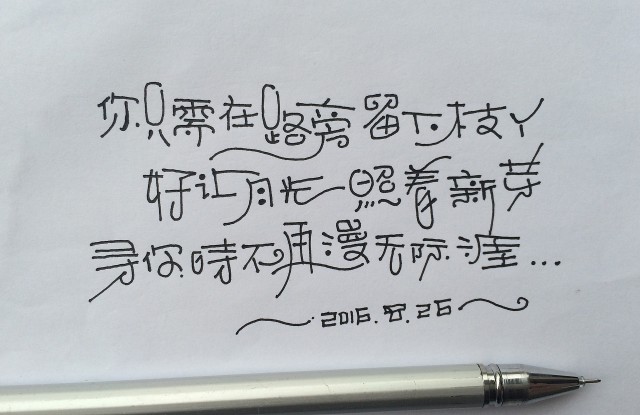 你只需在路旁留下枝丫
好让月光照着新芽
寻你時不再漫无际涯...
2016.8.26